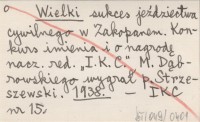 o Wielki sukces jeździectwa
cywilnego w Zakopanem. Kon-
kurs imienia i o nagrodę
nacz. red. „I.K.C." M. Dąb-
rowskiego wygrał p. Strze-
szewski. 1938. — IKC
nr 15.